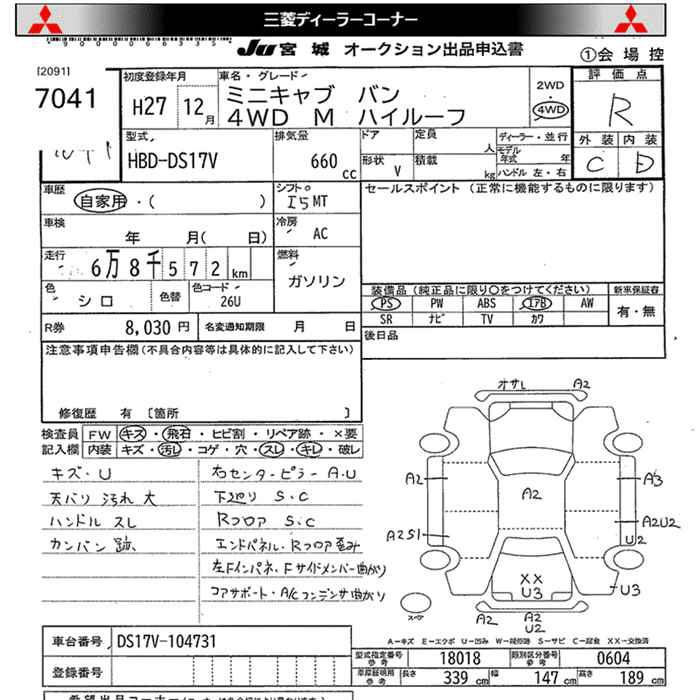 三菱ディーラーコーナー
JU 宮城 オークション出品申込書
①会場控
[2091]
7041
初度登録年月
H27 12月
車名・グレード
ミニキャブ バン
4WD M ハイルーフ
2WD
・
4WD
評価点
R
外装 内装
C D
型式
HBD-DS17V
排気量
660 cc
ドア 定員 人
形状 V 積載 kg
ディーラー・並行
モデル年式 年
ハンドル 左・右
車歴
自家用・( )
シフト
I5 MT
セールスポイント (正常に機能するものに限ります)
車検
年 月( 日)
冷房
AC
走行
6万8千572km
燃料
ガソリン
色
シロ
色替
色コード
26U
装備品 (純正品に限り○をつけてください)
PS PW ABS エアB AW
SR ナビ TV カワ
新車保証書
有・無
R券 8,030円 名変通知期限 月 日
後日品
注意事項申告欄 (不具合内容等は具体的に記入して下さい)
修復歴 有 〔箇所 〕
検査員記入欄
FW キズ・飛石・ヒビ割・リペア跡・×要
内装 キズ・汚レ・コゲ・穴・スレ・キレ・破レ
キズ・U
天バリ 汚れ 大
ハンドル スレ
カンバン跡、
右センターピラー A・U
下廻り S・C
Rフロア S・C
エンドパネル・Rフロア歪み
左Fインパネ、Fサイドメンバー曲がり
コアサポート・A/Cコンデンサ曲がり
オサレ A2
A2
A2
A3
A2S1
A2U2
U2
XX
U3
U3
スペア
A2
A2
U2
A-キズ E-エクボ U-凹み W-補修跡 S-サビ C-腐食 XX-交換済
車台番号 DS17V-104731
登録番号
型式指定番号 参考 18018
類別区分番号 参考 0604
車庫証明用 参考 長さ 339 cm 幅 147 cm 高さ 189 cm